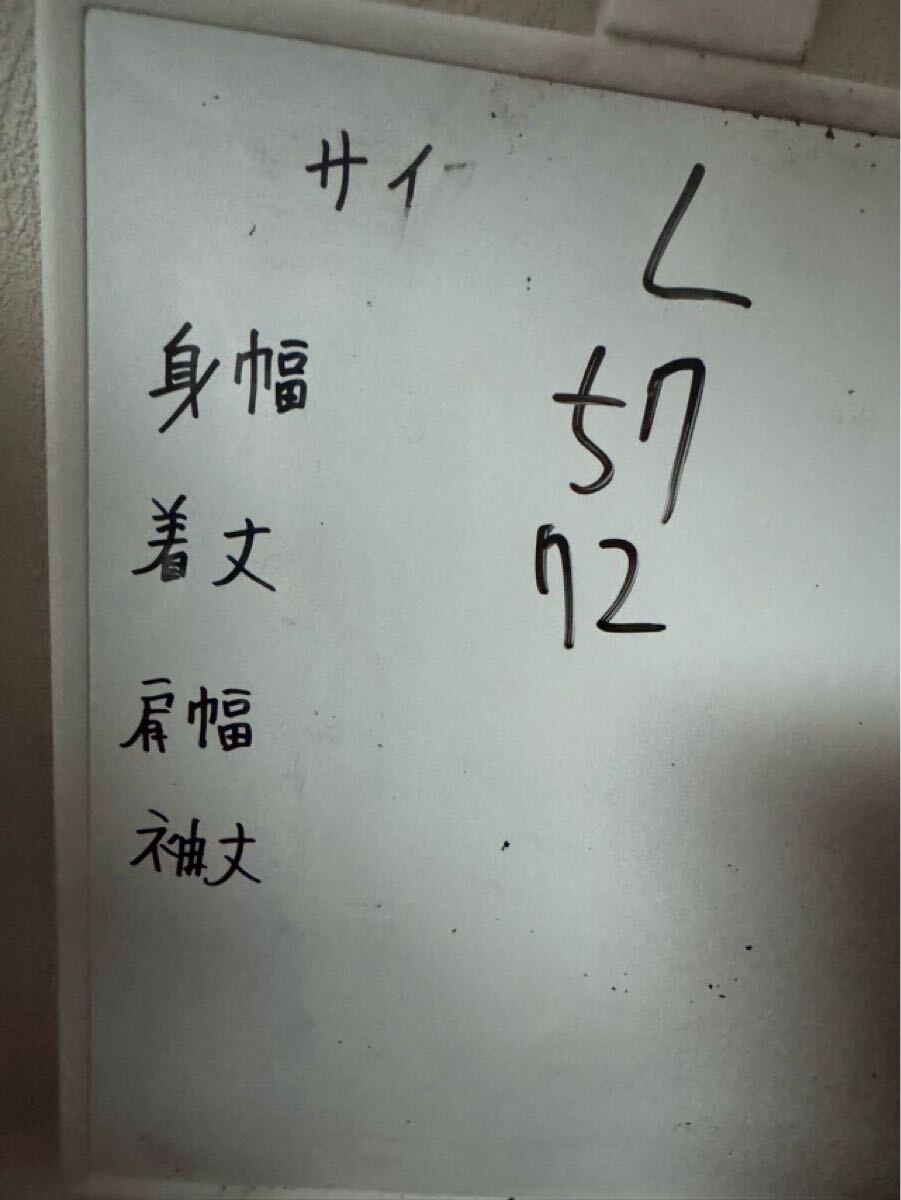 サイ L
身幅 57
着丈 72
肩幅
袖丈